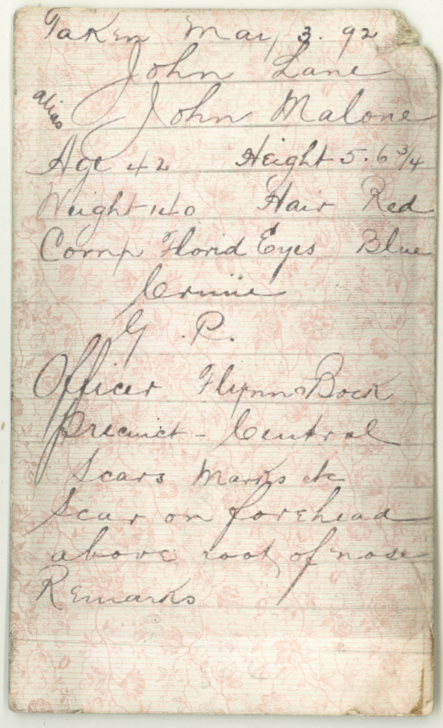 Taken May 3. 92
John Lane
alias John Malone
Age 42 Height 5.6 3/4
Weight 140 Hair Red
Comp Florid Eyes Blue
Crime
G. P.
Officer Flynn & Bock
Precinct - Central
Scars Marks etc
Scar on forehead
above root of nose
Remarks